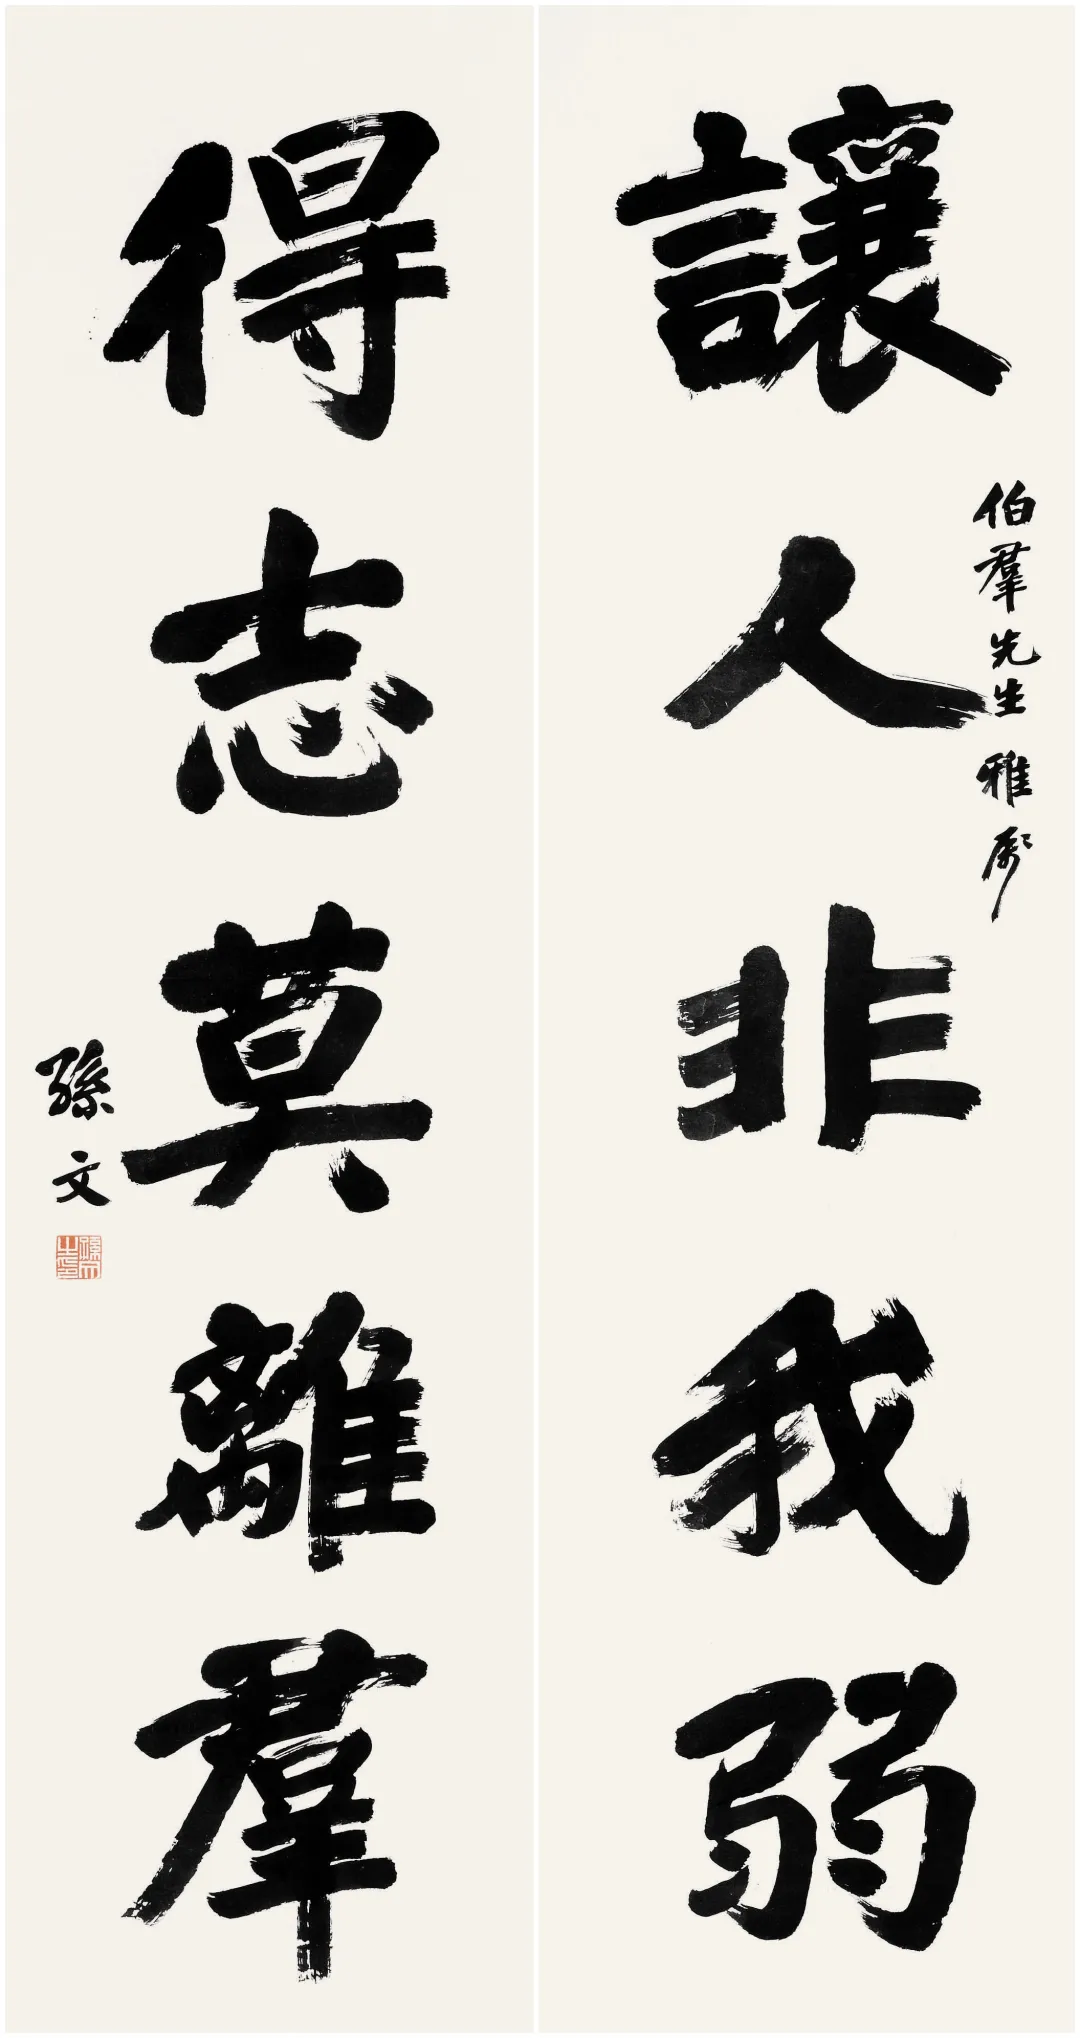 讓人非我弱
伯羣先生雅屬
得志莫離羣
孫文
孫文之印